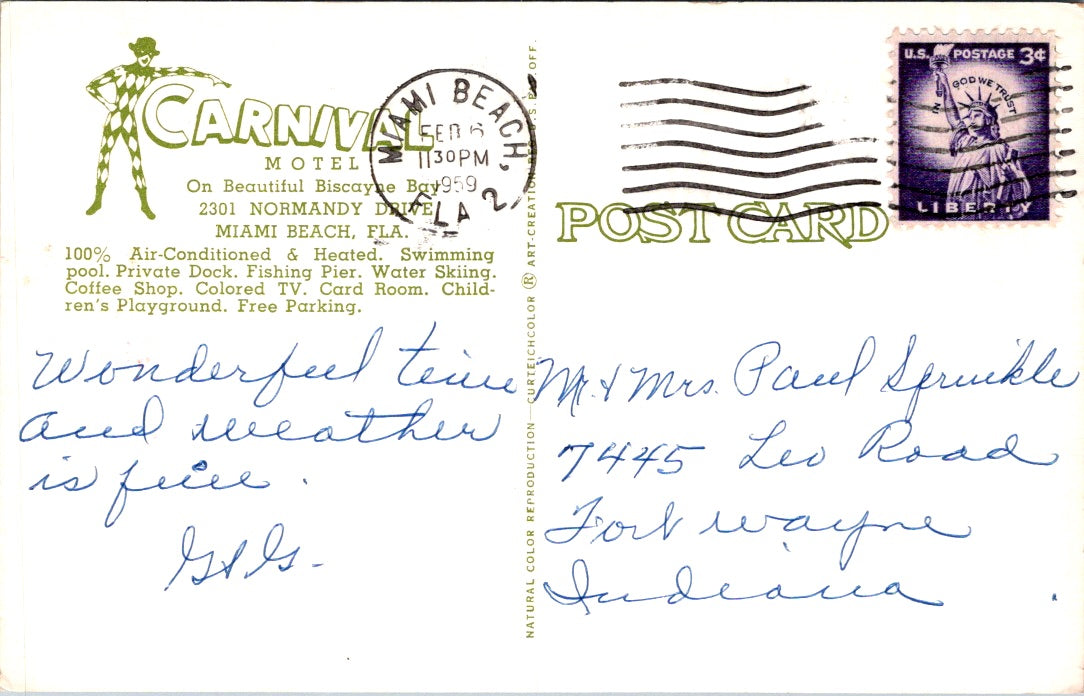 CARNIVAL
MOTEL
On Beautiful Biscayne Bay
2301 NORMANDY DRIVE
MIAMI BEACH, FLA.
100% Air-Conditioned & Heated. Swimming
pool. Private Dock. Fishing Pier. Water Skiing.
Coffee Shop. Colored TV. Card Room. Child-
ren's Playground. Free Parking.
MIAMI BEACH,
FEB 6
1130PM
1959
FLA 2
U.S. POSTAGE 3¢
IN GOD WE TRUST
LIBERTY
POST CARD
NATURAL COLOR REPRODUCTION—CURTEICHCOLOR ® ART-CREATION
Wonderful time
and weather
is fine.
G & G.
Mr. & Mrs. Paul Sprinkle
7445 Leo Road
Fort Wayne
Indiana